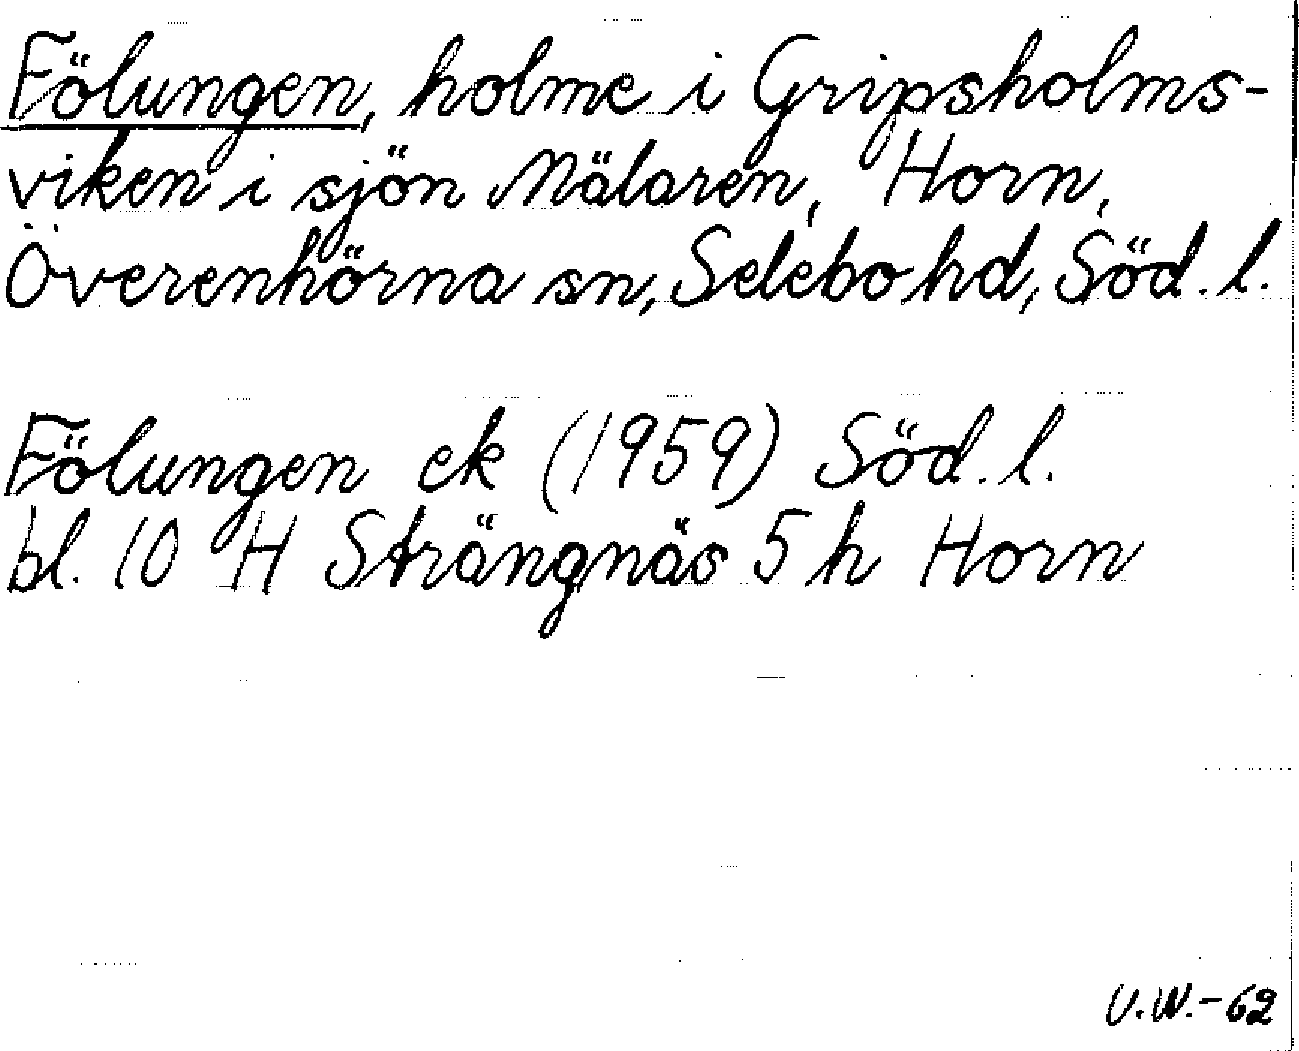 Fölungen, holme i Gripsholms-
viken i sjön Mälaren, Horn,
Överenhörna sn, Selebo hd, Söd. l.
Fölungen ek (1959) Söd. l.
bl. 10 H Strängnäs 5 h Horn
U.W.-62